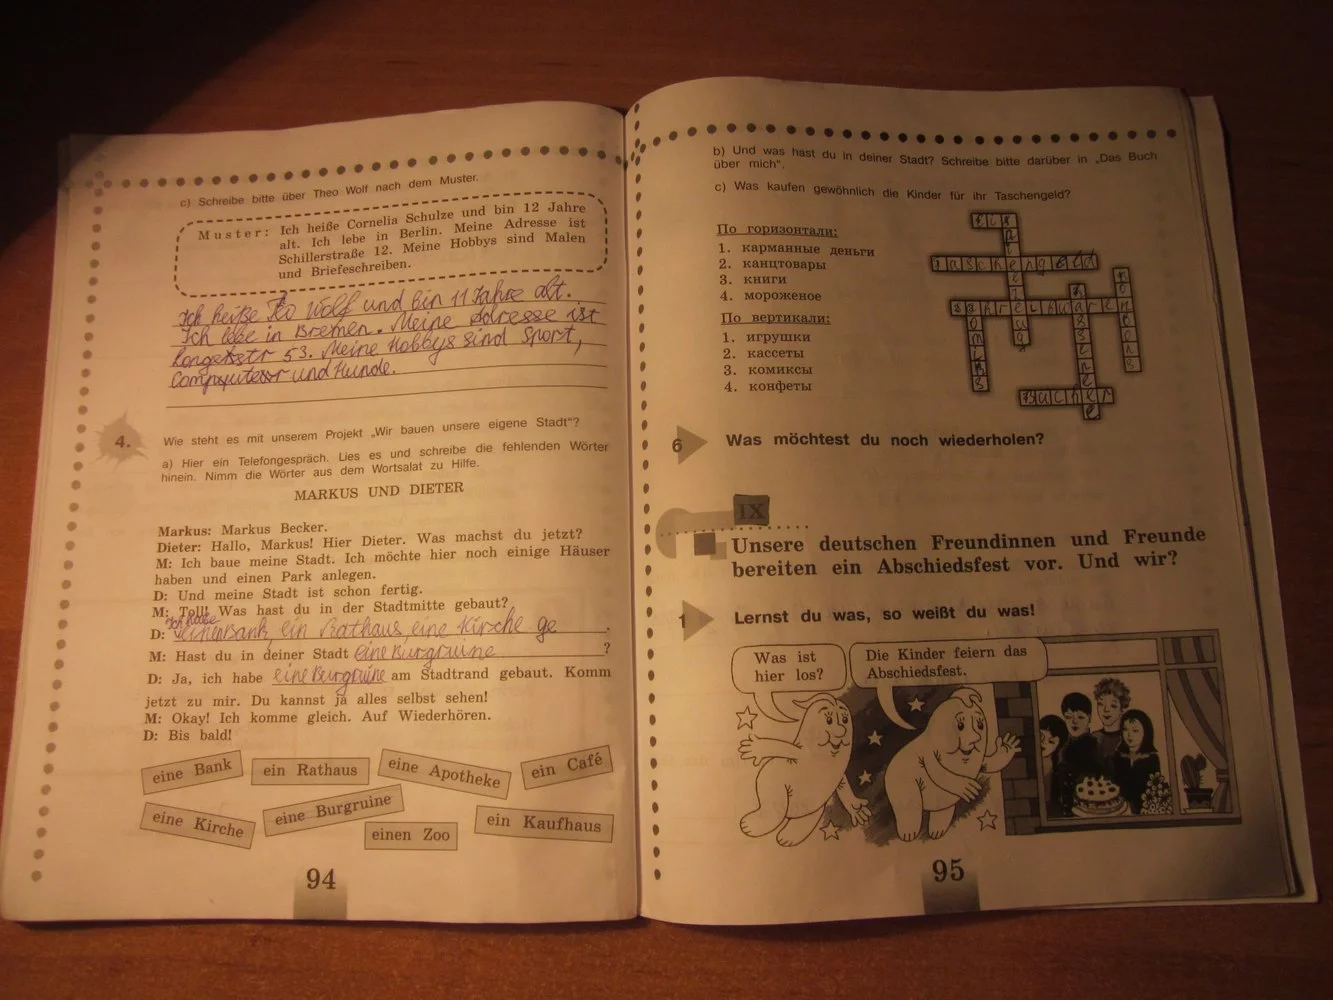 c) Schreibe bitte über Theo Wolf nach dem Muster.
Muster: Ich heiße Cornelia Schulze und bin 12 Jahre
alt. Ich lebe in Berlin. Meine Adresse ist
Schillerstraße 12. Meine Hobbys sind Malen
und Briefeschreiben.
Ich heiße Wolf und bin 11 Jahre alt.
Ich lebe in Bremen. Meine Adresse ist
53. Meine Hobbys sind Sport,
und Hunde.
4.
Wie steht es mit unserem Projekt „Wir bauen unsere eigene Stadt"?
a) Hier ein Telefongespräch. Lies es und schreibe die fehlenden Wörter
hinein. Nimm die Wörter aus dem Wortsalat zu Hilfe.
MARKUS UND DIETER
Markus: Markus Becker.
Dieter: Hallo, Markus! Hier Dieter. Was machst du jetzt?
M: Ich baue meine Stadt. Ich möchte hier noch einige Häuser
haben und einen Park anlegen.
D: Und meine Stadt ist schon fertig.
M: Toll! Was hast du in der Stadtmitte gebaut?
Ich habe
D: eine Bank, ein Rathaus, eine Kirche ge.
M: Hast du in deiner Stadt eine Burgruine?
D: Ja, ich habe eine Burgruine am Stadtrand gebaut. Komm
jetzt zu mir. Du kannst ja alles selbst sehen!
M: Okay! Ich komme gleich. Auf Wiederhören.
D: Bis bald!
eine Bank ein Rathaus eine Apotheke ein Café
eine Kirche eine Burgruine einen Zoo ein Kaufhaus
94
b) Und was hast du in deiner Stadt? Schreibe bitte darüber in „Das Buch
über mich".
c) Was kaufen gewöhnlich die Kinder für ihr Taschengeld?
По горизонтали:
1. карманные деньги
2. канцтовары
3. книги
4. мороженое
По вертикали:
1. игрушки
2. кассеты
3. комиксы
4. конфеты
Taschengeld
6
Was möchtest du noch wiederholen?
IX
Unsere deutschen Freundinnen und Freunde
bereiten ein Abschiedsfest vor. Und wir?
1
Lernst du was, so weißt du was!
Was ist
hier los?
Die Kinder feiern das
Abschiedsfest.
95